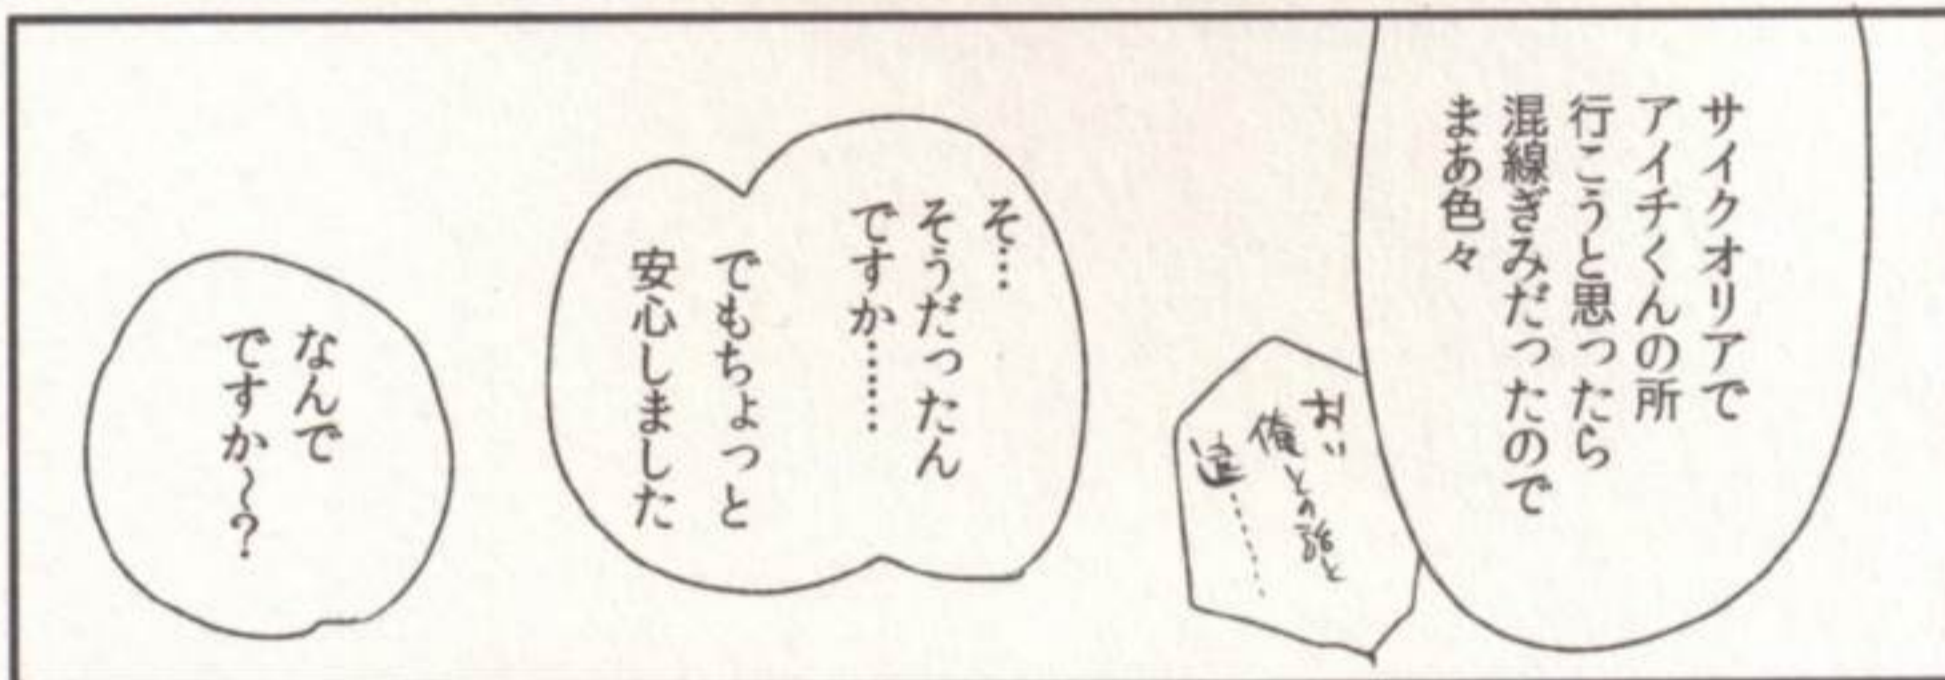 サイクオリアで
アイチくんの所
行こうと思ったら
混線ぎみだったので
まあ色々
おい
俺との話と
違……
そ…
そうだったん
ですか……
でもちょっと
安心しました
なんで
ですか～？